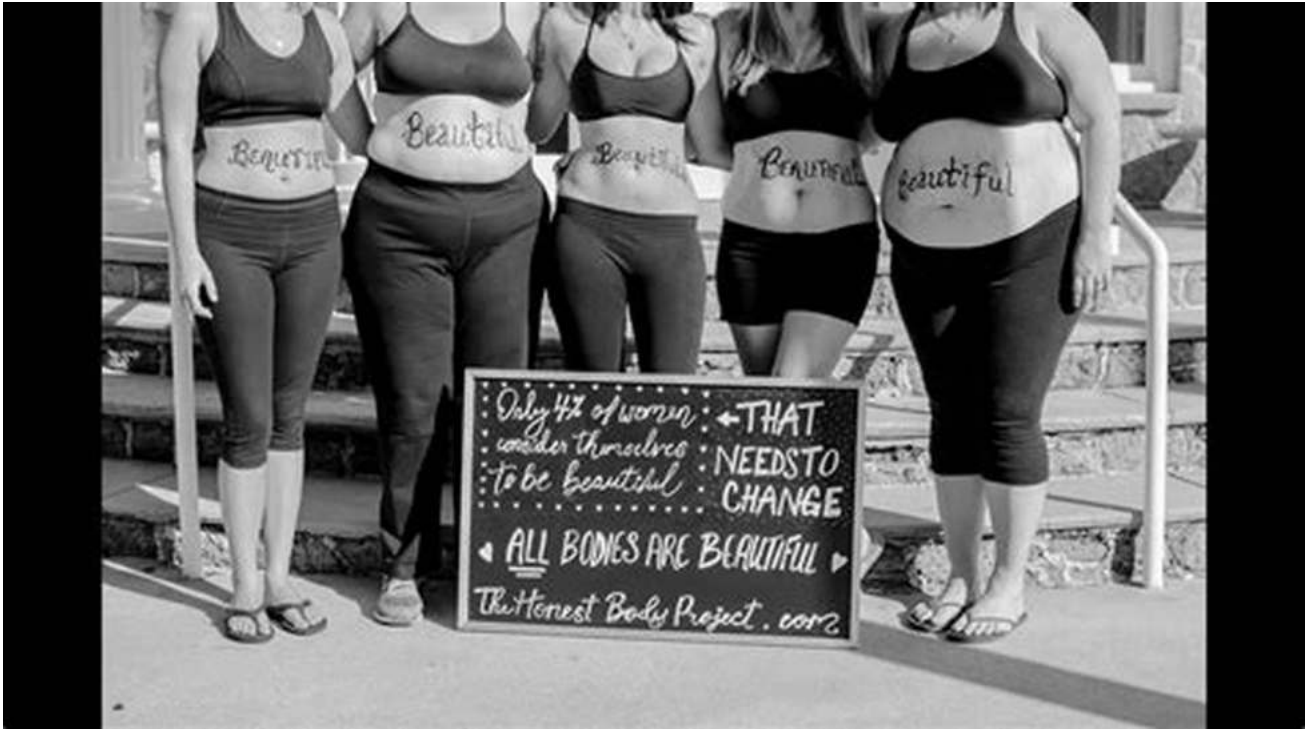 Beautiful
Beautiful
Beautiful
Beautiful
Beautiful
Only 4% of women
consider themselves
to be beautiful
←THAT
NEEDS TO
CHANGE
ALL BODIES ARE BEAUTIFUL
The Honest Body Project.com